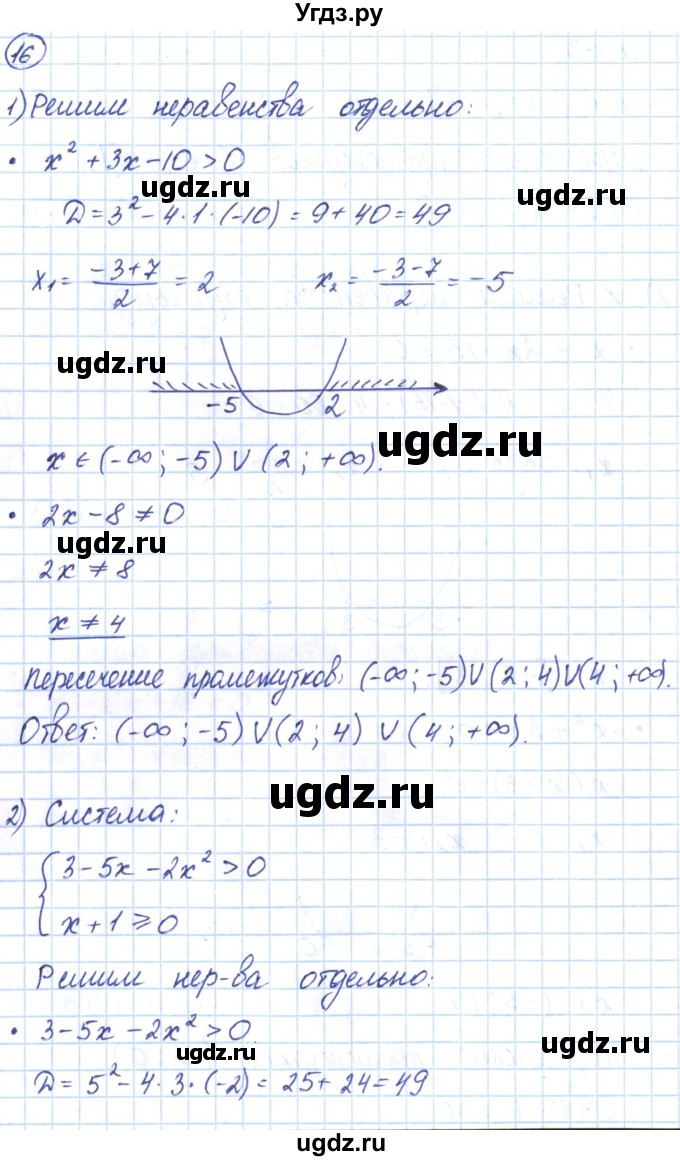 Угдз.ру
16
1) Решим неравенства отдельно:
• x² + 3x - 10 > 0
ugdz.ru
ugdz.ru
D = 3² - 4·1·(-10) = 9 + 40 = 49
x₁ = (-3+7)/2 = 2   x₂ = (-3-7)/2 = -5
ugdz.ru
-5   2
ugdz.ru
x ∈ (-∞; -5) ∪ (2; +∞).
• 2x - 8 ≠ 0
ugdz.ru
2x ≠ 8
x ≠ 4
Пересечение промежутков: (-∞; -5) ∪ (2; 4) ∪ (4; +∞).
Ответ: (-∞; -5) ∪ (2; 4) ∪ (4; +∞).
ugdz.ru
2) Система:
{ 3 - 5x - 2x² > 0
x + 1 ≥ 0
Решим нер-ва отдельно:
• 3 - 5x - 2x² > 0.
ugdz.ru
ugdz.ru
D = 5² - 4·3·(-2) = 25 + 24 = 49
ugdz.ru